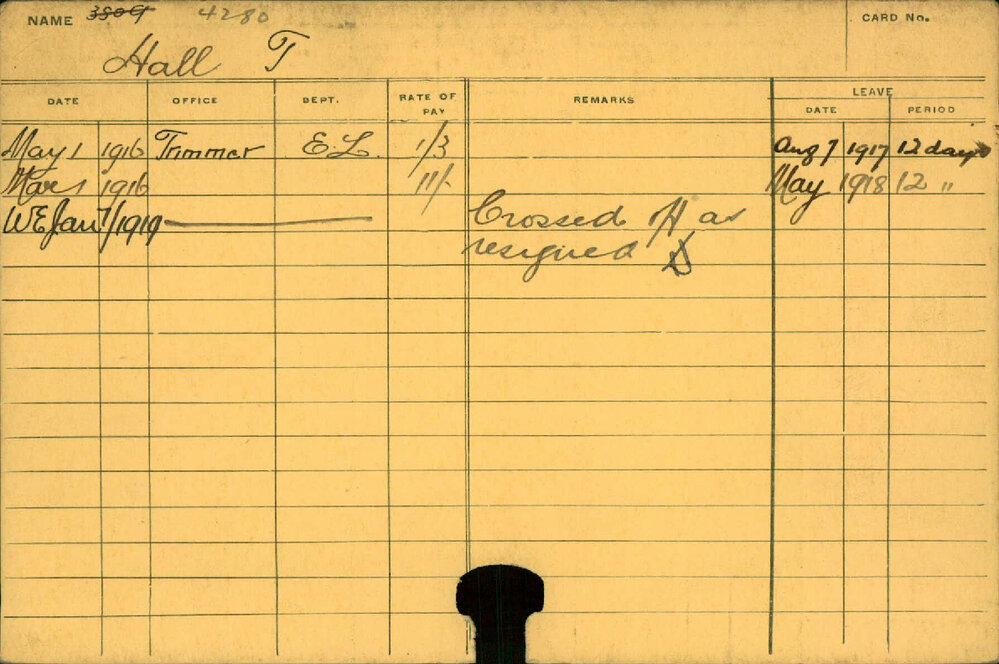 NAME 3809 4280 CARD No.
Hall T
DATE OFFICE DEPT. RATE OF PAY REMARKS LEAVE
DATE PERIOD
May 1 1916 Trimmer E.L. 1/3 Aug 7 1917 12 days
Mar 1 1916 11/- May 1918 12 "
WE Jan 7/1919 Crossed off as
resigned